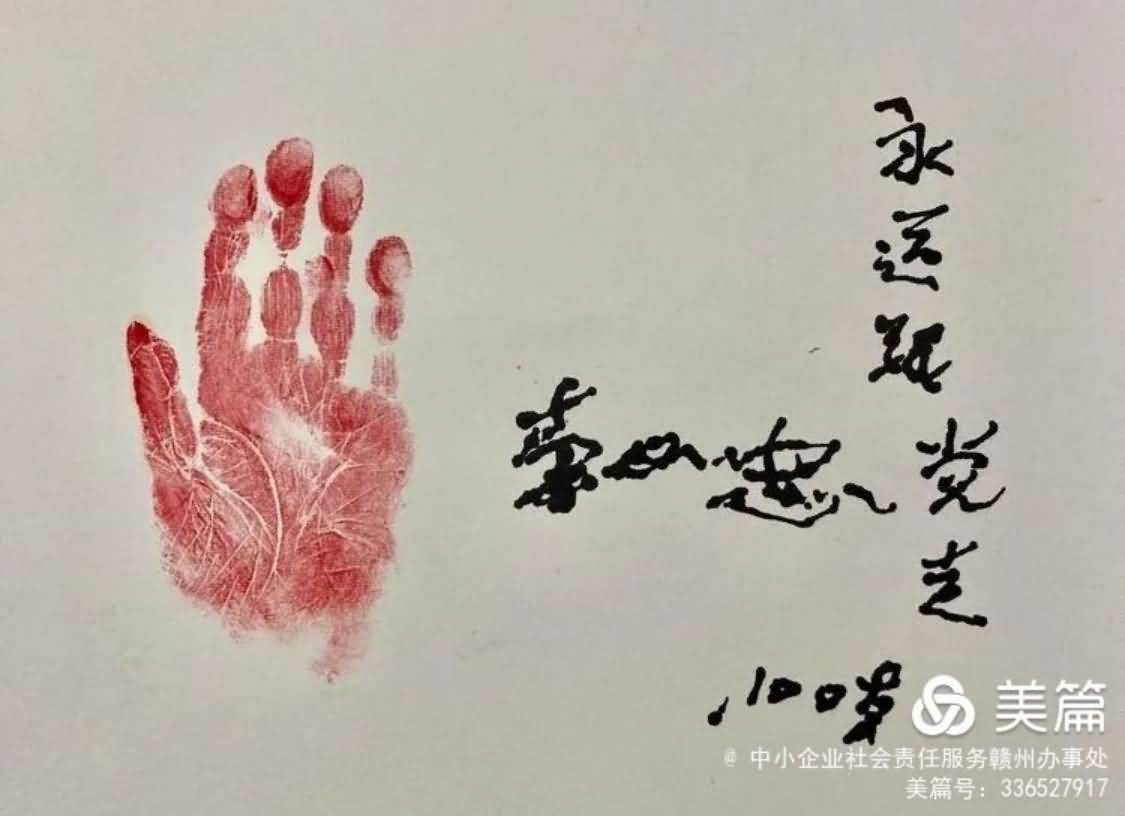 永远跟党走
100岁
美篇
@ 中小企业社会责任服务赣州办事处
美篇号：336527917